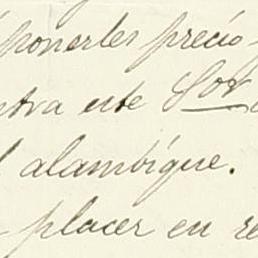 ponerles precio
ntra este Sor
l alambique.
placer en re